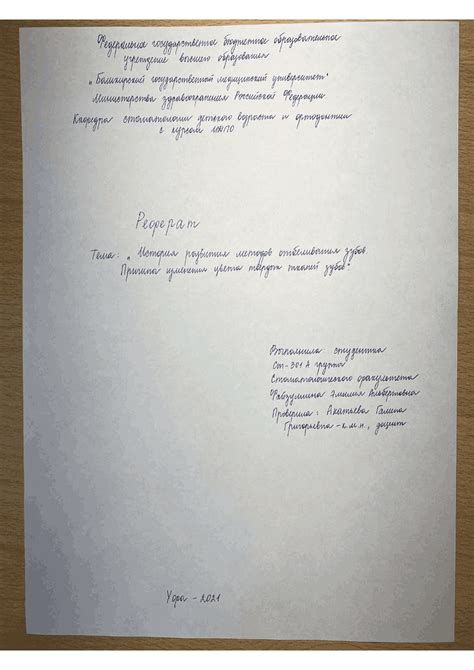 Федеральное государственное бюджетное образовательное
учреждение высшего образования
„Башкирский государственный медицинский университет"
Министерства здравоохранения Российской Федерации.
Кафедра стоматологии детского возраста и ортодонтии
с курсом ИДПО
Реферат
Тема: „ История развития методов отбеливания зубов.
Причина изменения цвета твердых тканей зубов".
Выполнила: студентка
Ст-301 А группа
Стоматологического факультета
Эмилия Альбертовна
Проверила: Акатьева Галина
Григорьевна - к.м.н., доцент
Уфа - 2021